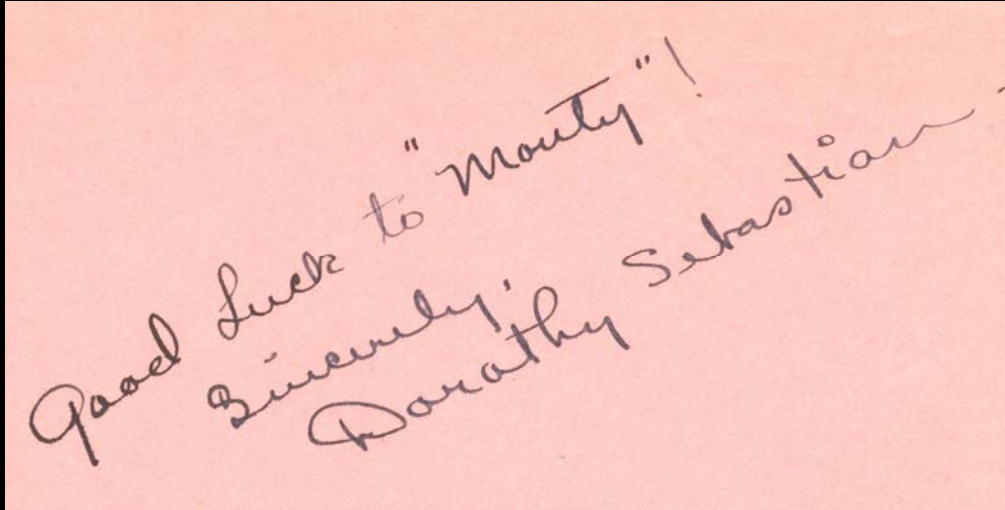 Good Luck to "Monty"!
Sincerely,
Dorothy Sebastian.